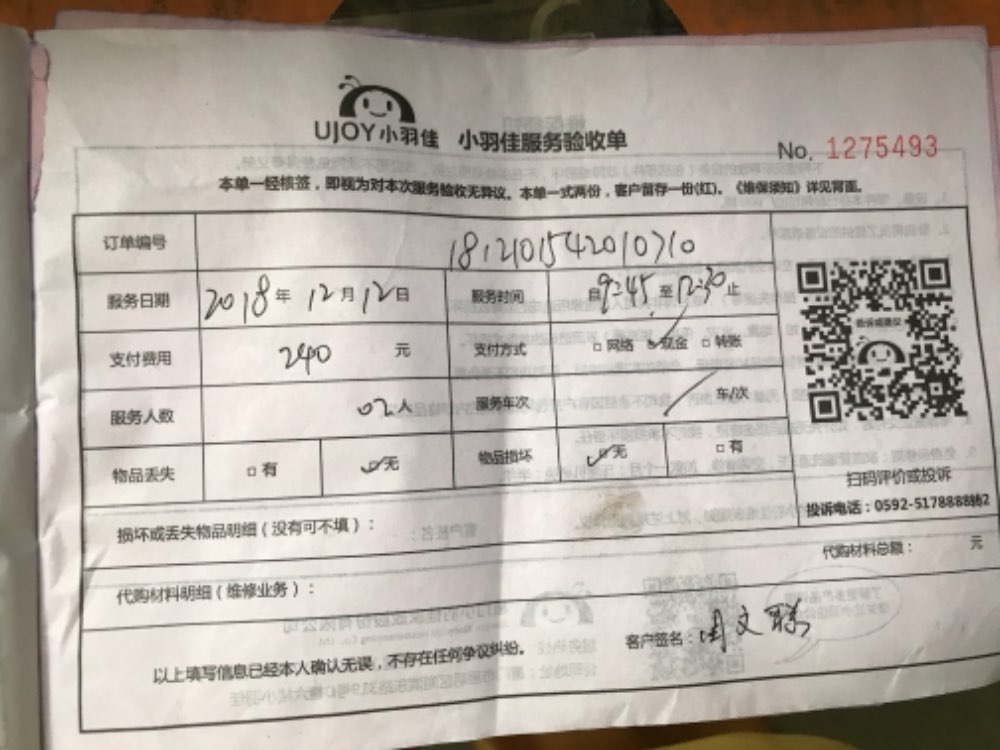 UJOY小羽佳 小羽佳服务验收单
No. 1275493
本单一经核签，即视为对本次服务验收无异议。本单一式两份，客户留存一份(红)。《维保须知》详见背面。
订单编号 1812101542010710
服务日期 2018年 12月 12日 服务时间 自9:45至12:30止
支付费用 240 元 支付方式 □网络 ☑现金 □转账
服务人数 02人 服务车次 / 车/次
物品丢失 □有 ☑无 物品损坏 ☑无 □有
投诉或建议
扫码评价或投诉
投诉电话：0592-5178888转2
损坏或丢失物品明细（没有可不填）：
代购材料总额： 元
代购材料明细（维修业务）：
以上填写信息已经本人确认无误，不存在任何争议纠纷。
客户签名：周文联